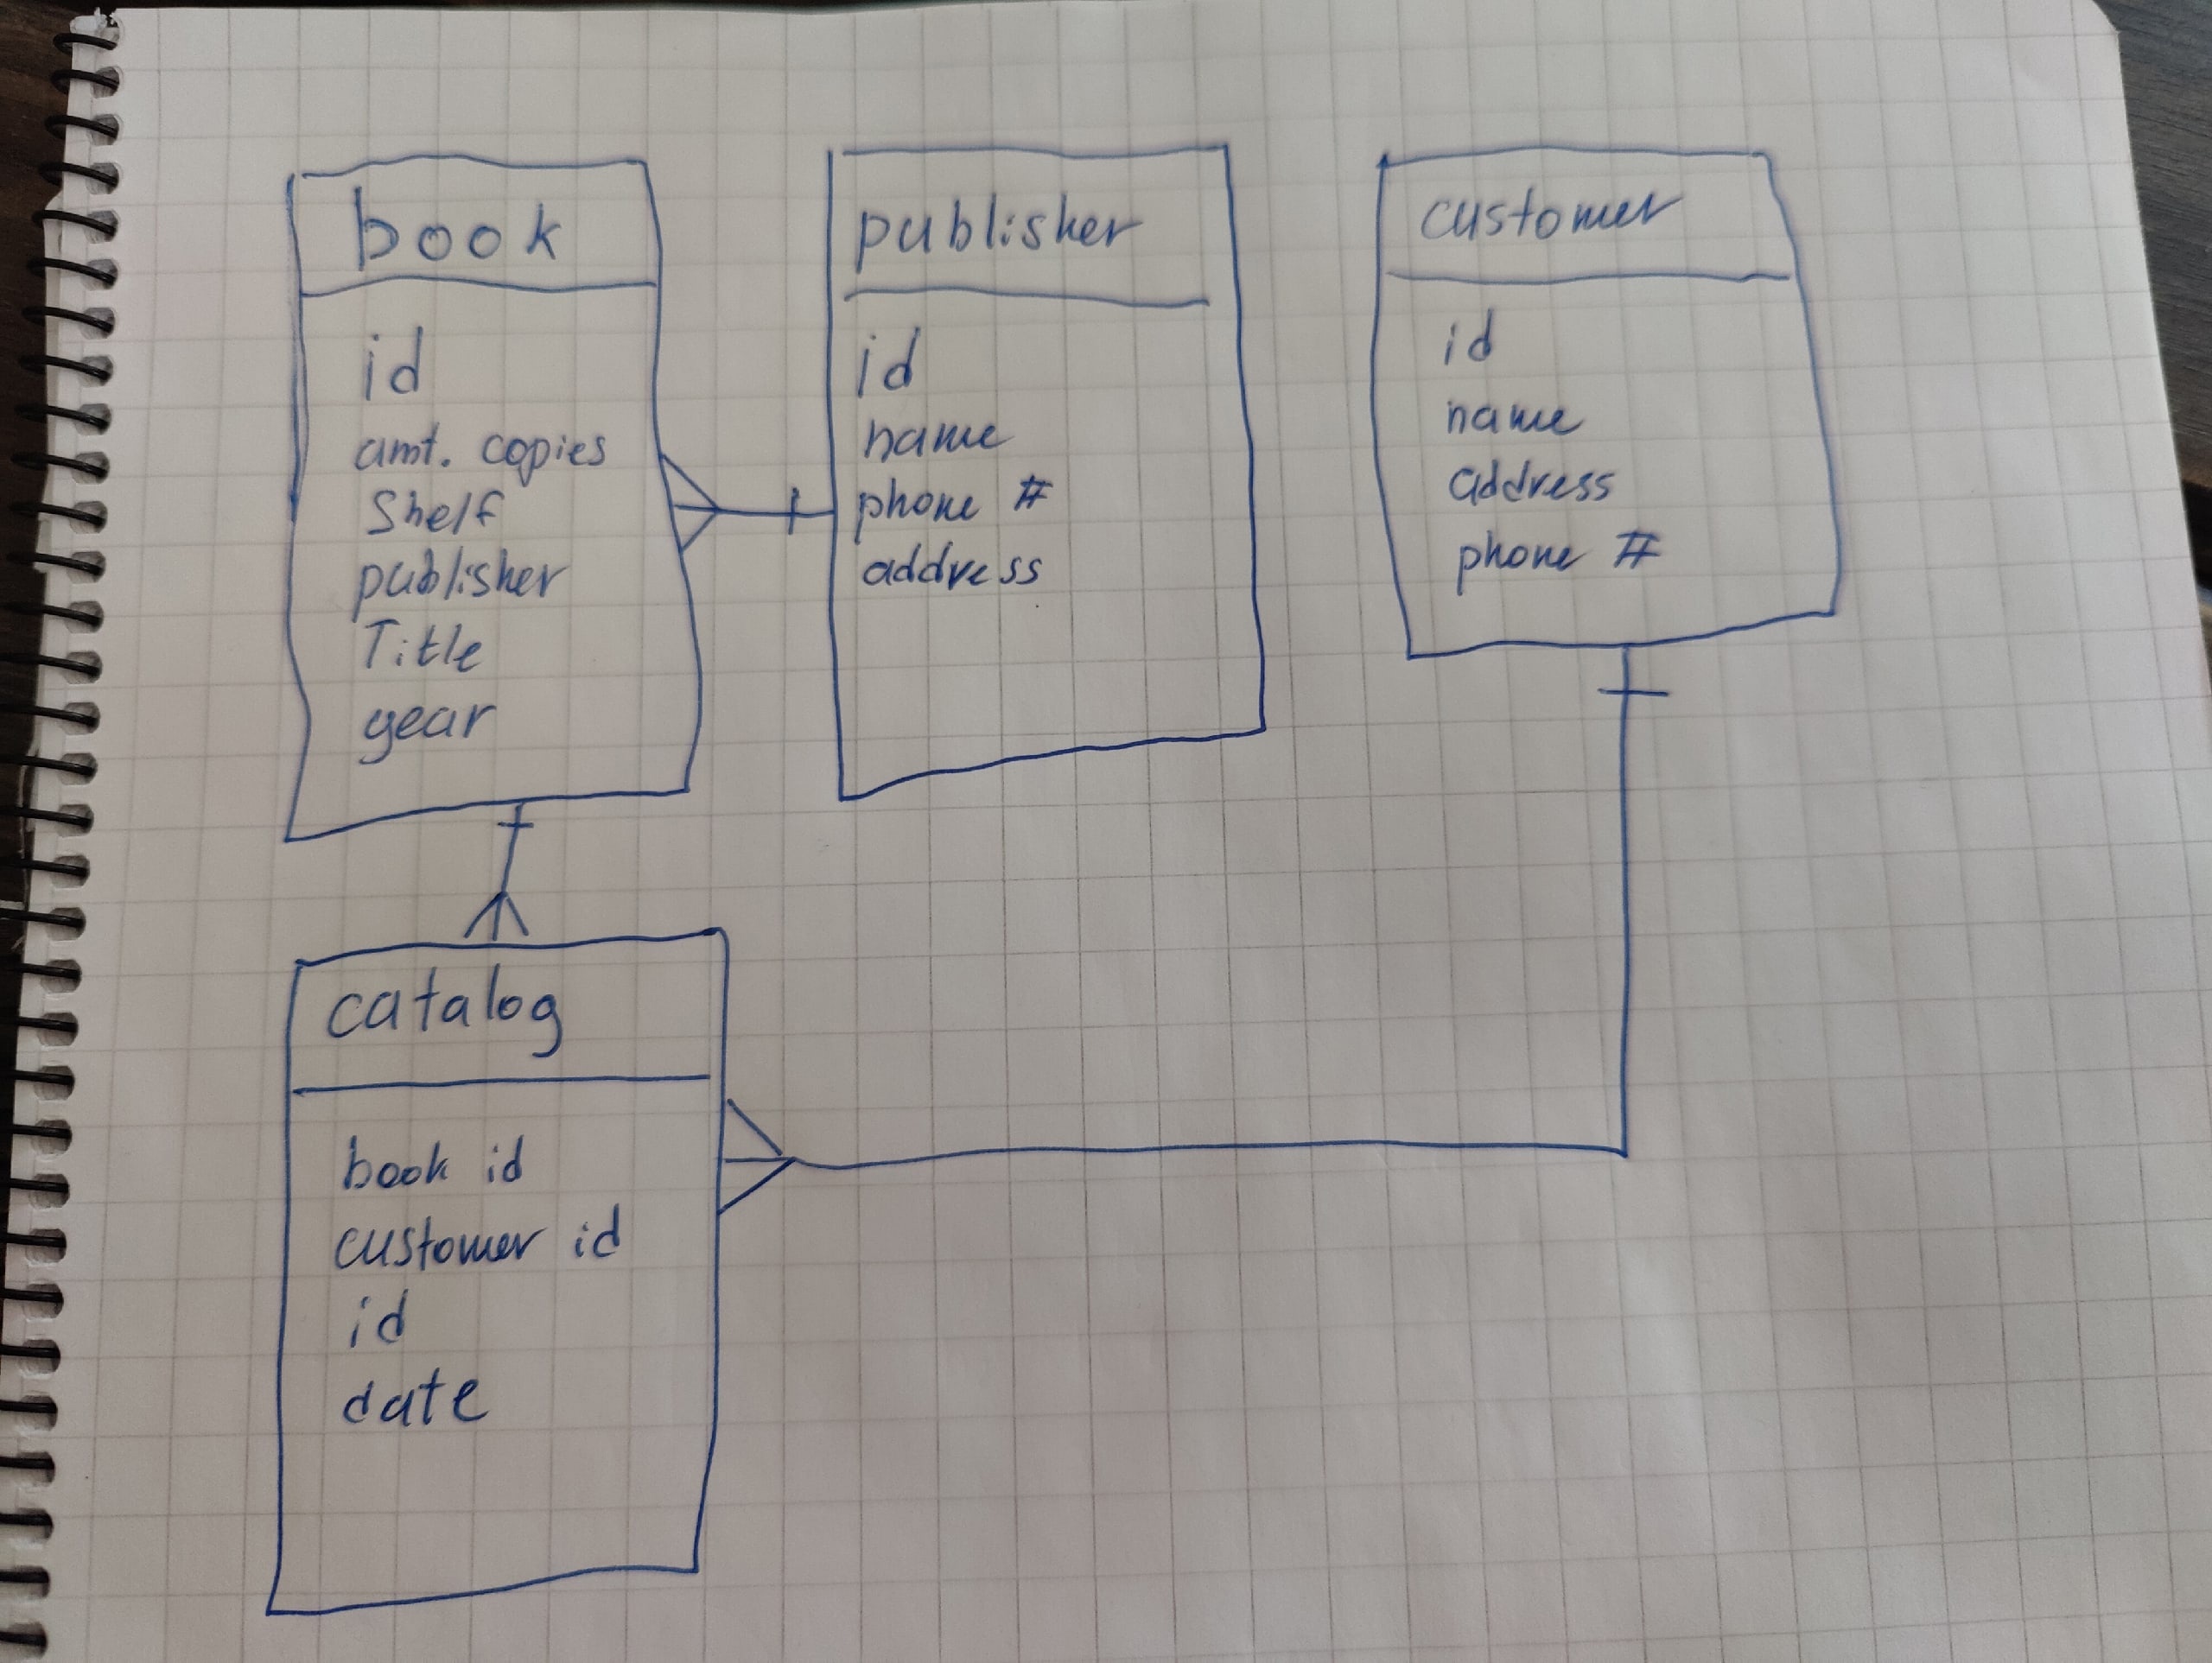 book
id
amt. copies
Shelf
publisher
Title
year
publisher
id
name
phone #
address
customer
id
name
address
phone #
catalog
book id
customer id
id
date